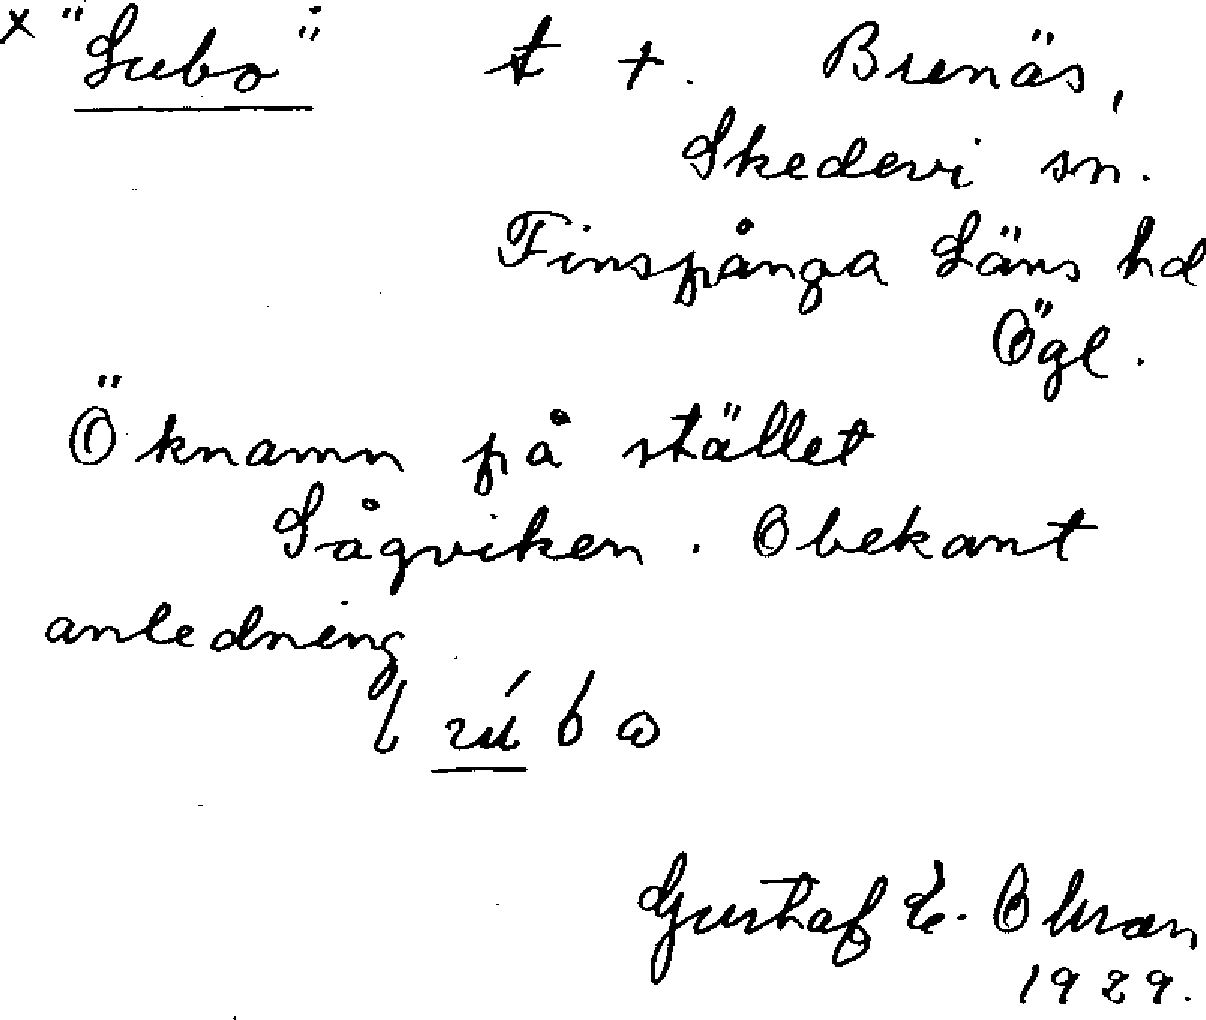 x "Lubo" t +. Brenäs,
Skedevi sn.
Finspånga Läns hd
Ögl.
Öknamn på stället
Sågviken. Obekant
anledning
Gustaf E. Olsson
1929.